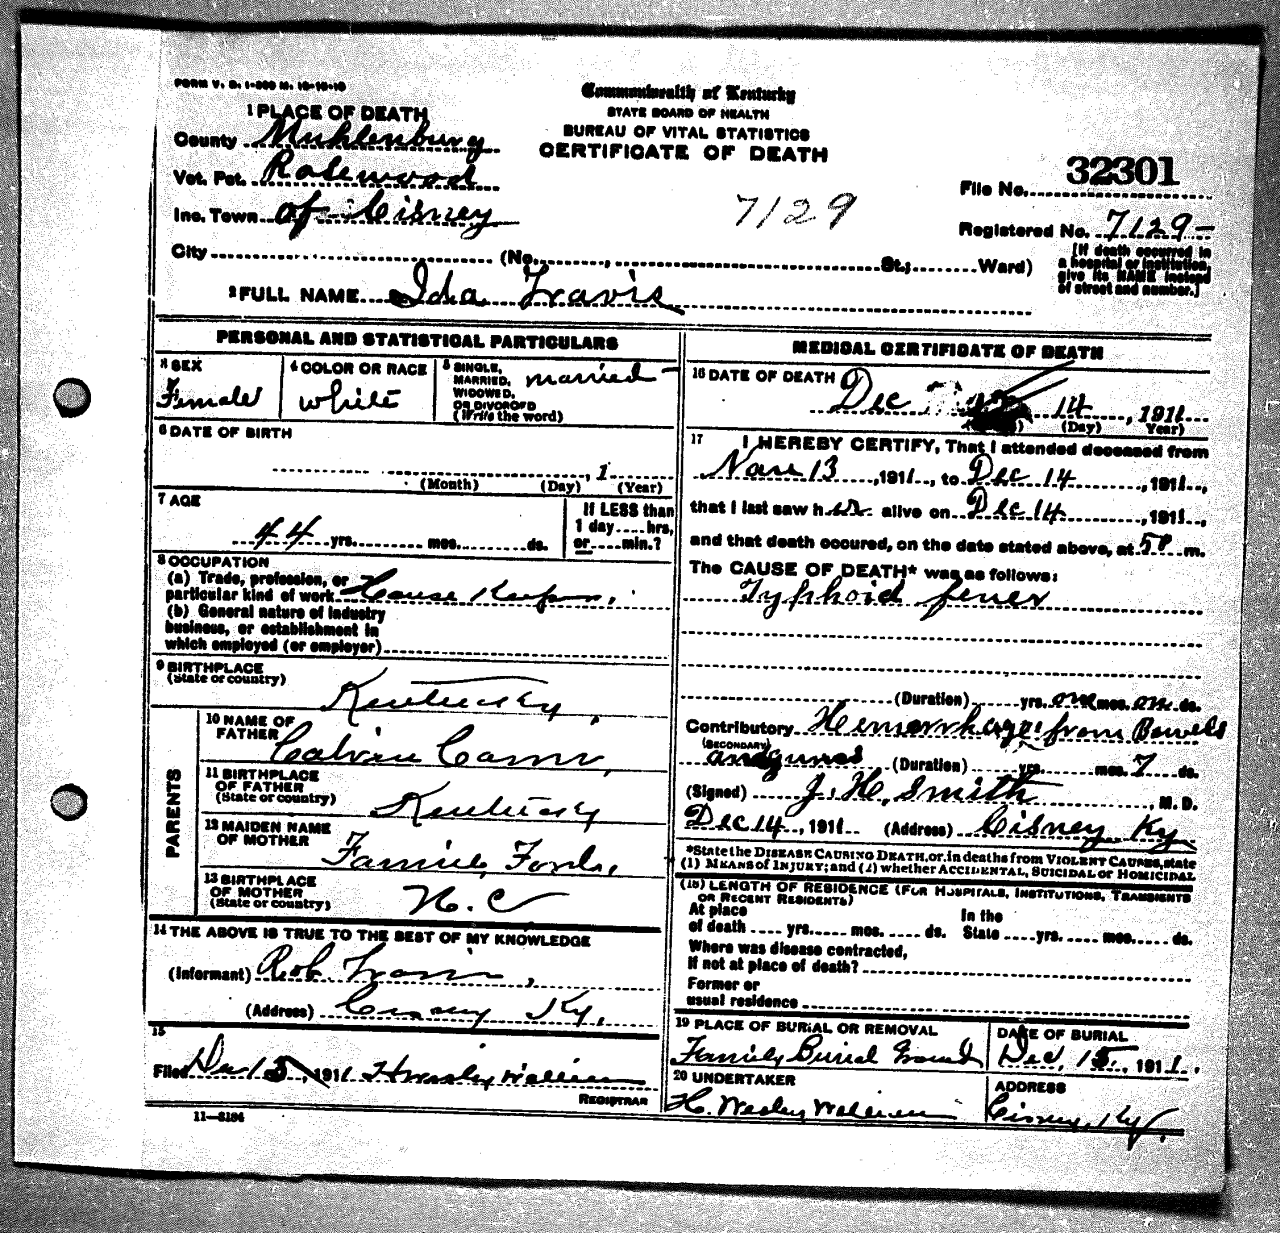 FORM V. S. 1-500 M. 10-10-10
Commonwealth of Kentucky
STATE BOARD OF HEALTH
BUREAU OF VITAL STATISTICS
CERTIFICATE OF DEATH
1 PLACE OF DEATH
County Muhlenburg
Vot. Pct. Rosewood
Inc. Town of Cisney
City (No. , St.; Ward)
7129
File No. 32301
Registered No. 7129-
[If death occurred in
a hospital or institution,
give its NAME instead
of street and number.]
2 FULL NAME Ida Travis
PERSONAL AND STATISTICAL PARTICULARS
3 SEX
Female
4 COLOR OR RACE
white
5 SINGLE,
MARRIED,
WIDOWED,
OR DIVORCED
(Write the word)
married
6 DATE OF BIRTH
, 1
(Month) (Day) (Year)
7 AGE
44 yrs. mos. ds.
If LESS than
1 day hrs,
or min.?
8 OCCUPATION
(a) Trade, profession, or
particular kind of work House Keeper.
(b) General nature of industry
business, or establishment in
which employed (or employer)
9 BIRTHPLACE
(State or country)
Kentucky,
PARENTS
10 NAME OF
FATHER
Calvin
11 BIRTHPLACE
OF FATHER
(State or country)
Kentucky
12 MAIDEN NAME
OF MOTHER
Fannie,
13 BIRTHPLACE
OF MOTHER
(State or country)
N. C
14 THE ABOVE IS TRUE TO THE BEST OF MY KNOWLEDGE
(Informant) Rob Travis,
(Address) Cisney Ky.
15
Filed Dec 15, 1911 H Wesley
REGISTRAR
11—5194
MEDICAL CERTIFICATE OF DEATH
16 DATE OF DEATH
Dec 14, 1911
(Day) Year)
17 I HEREBY CERTIFY, That I attended deceased from
Nov 13, 1911, to Dec 14, 1911,
that I last saw her alive on Dec 14, 1911,
and that death occured, on the date stated above, at 5P m.
The CAUSE OF DEATH* was as follows:
Typhoid fever
(Duration) yrs. one mos. one ds.
Contributory Hemorrhage from Bowels
(SECONDARY)
and gums (Duration) yrs. mos. 7 ds.
(Signed) J. H. Smith, M. D.
Dec 14, 1911 (Address) Cisney Ky
*State the DISEASE CAUSING DEATH, or, in deaths from VIOLENT CAUSES, state
(1) MEANS of INJURY; and (2) whether ACCIDENTAL, SUICIDAL or HOMICIDAL
(18) LENGTH OF RESIDENCE (FOR HOSPITALS, INSTITUTIONS, TRANSIENTS
OR RECENT RESIDENTS)
At place
of death yrs. mos. ds.
In the
State yrs. mos. ds.
Where was disease contracted,
if not at place of death?
Former or
usual residence
19 PLACE OF BURIAL OR REMOVAL
Family Burial Ground
DATE OF BURIAL
Dec, 15, 1911.
20 UNDERTAKER
H. Wesley
ADDRESS
Cisney, Ky.